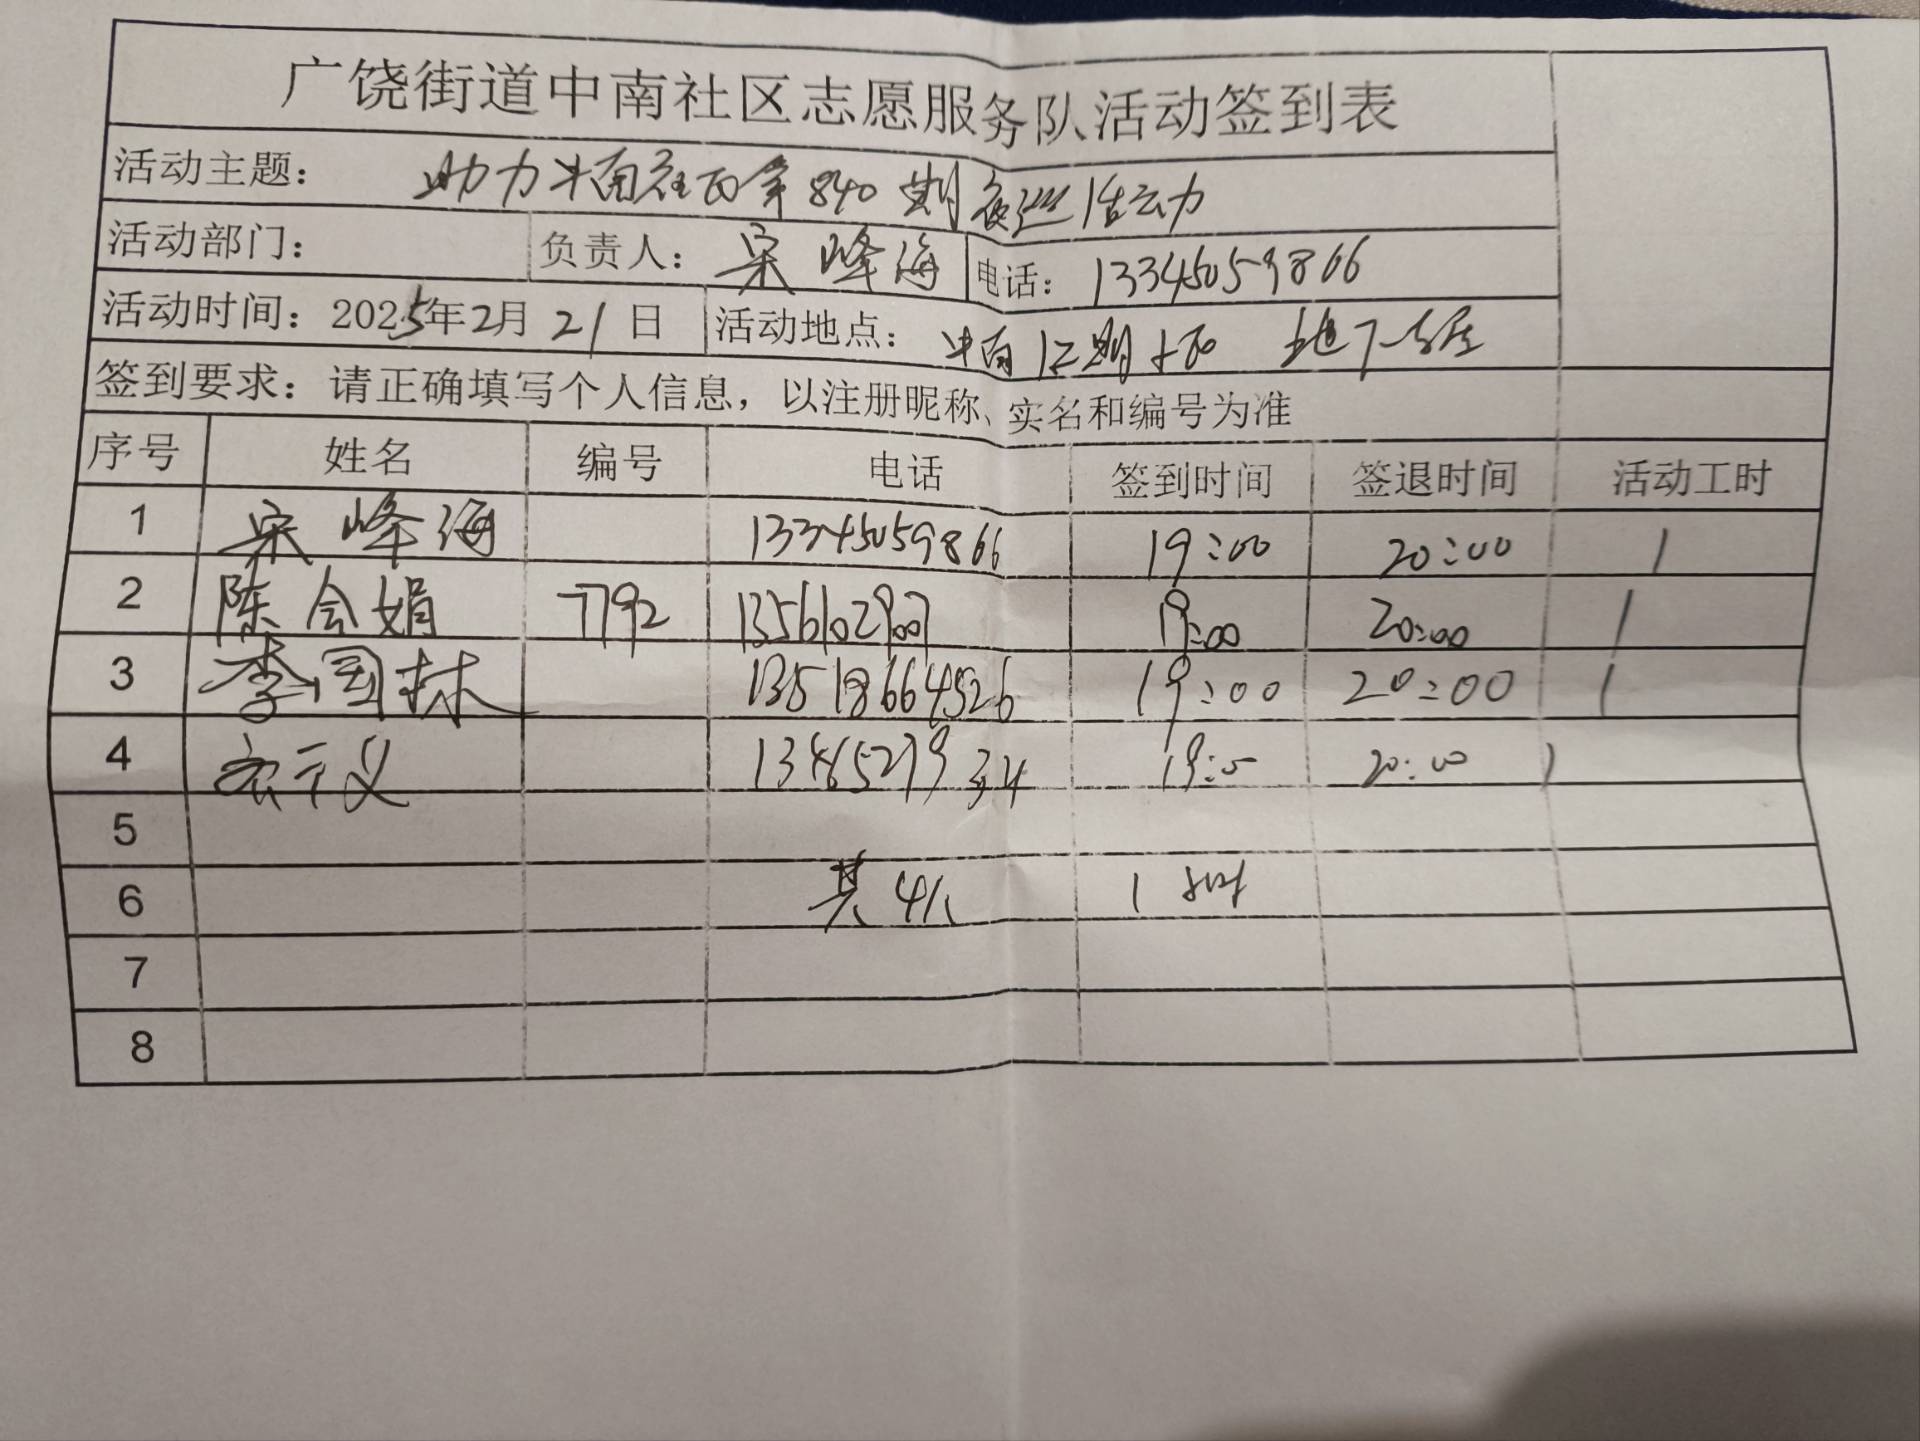 广饶街道中南社区志愿服务队活动签到表
活动主题： 助力中南社区第840期夜巡活动
活动部门： 负责人： 宋峰海 电话： 13345059866
活动时间：2025年2月21日 活动地点： 中南 期 地下
签到要求：请正确填写个人信息，以注册昵称、实名和编号为准
序号 姓名 编号 电话 签到时间 签退时间 活动工时
1 宋峰海 13345059866 19:00 20:00 1
2 陈会娟 7792 13561029007 19:00 20:00 1
3 李国林 13518664526 19:00 20:00 1
4 19:00 20:00 1
5
6 共4人 1小时
7
8